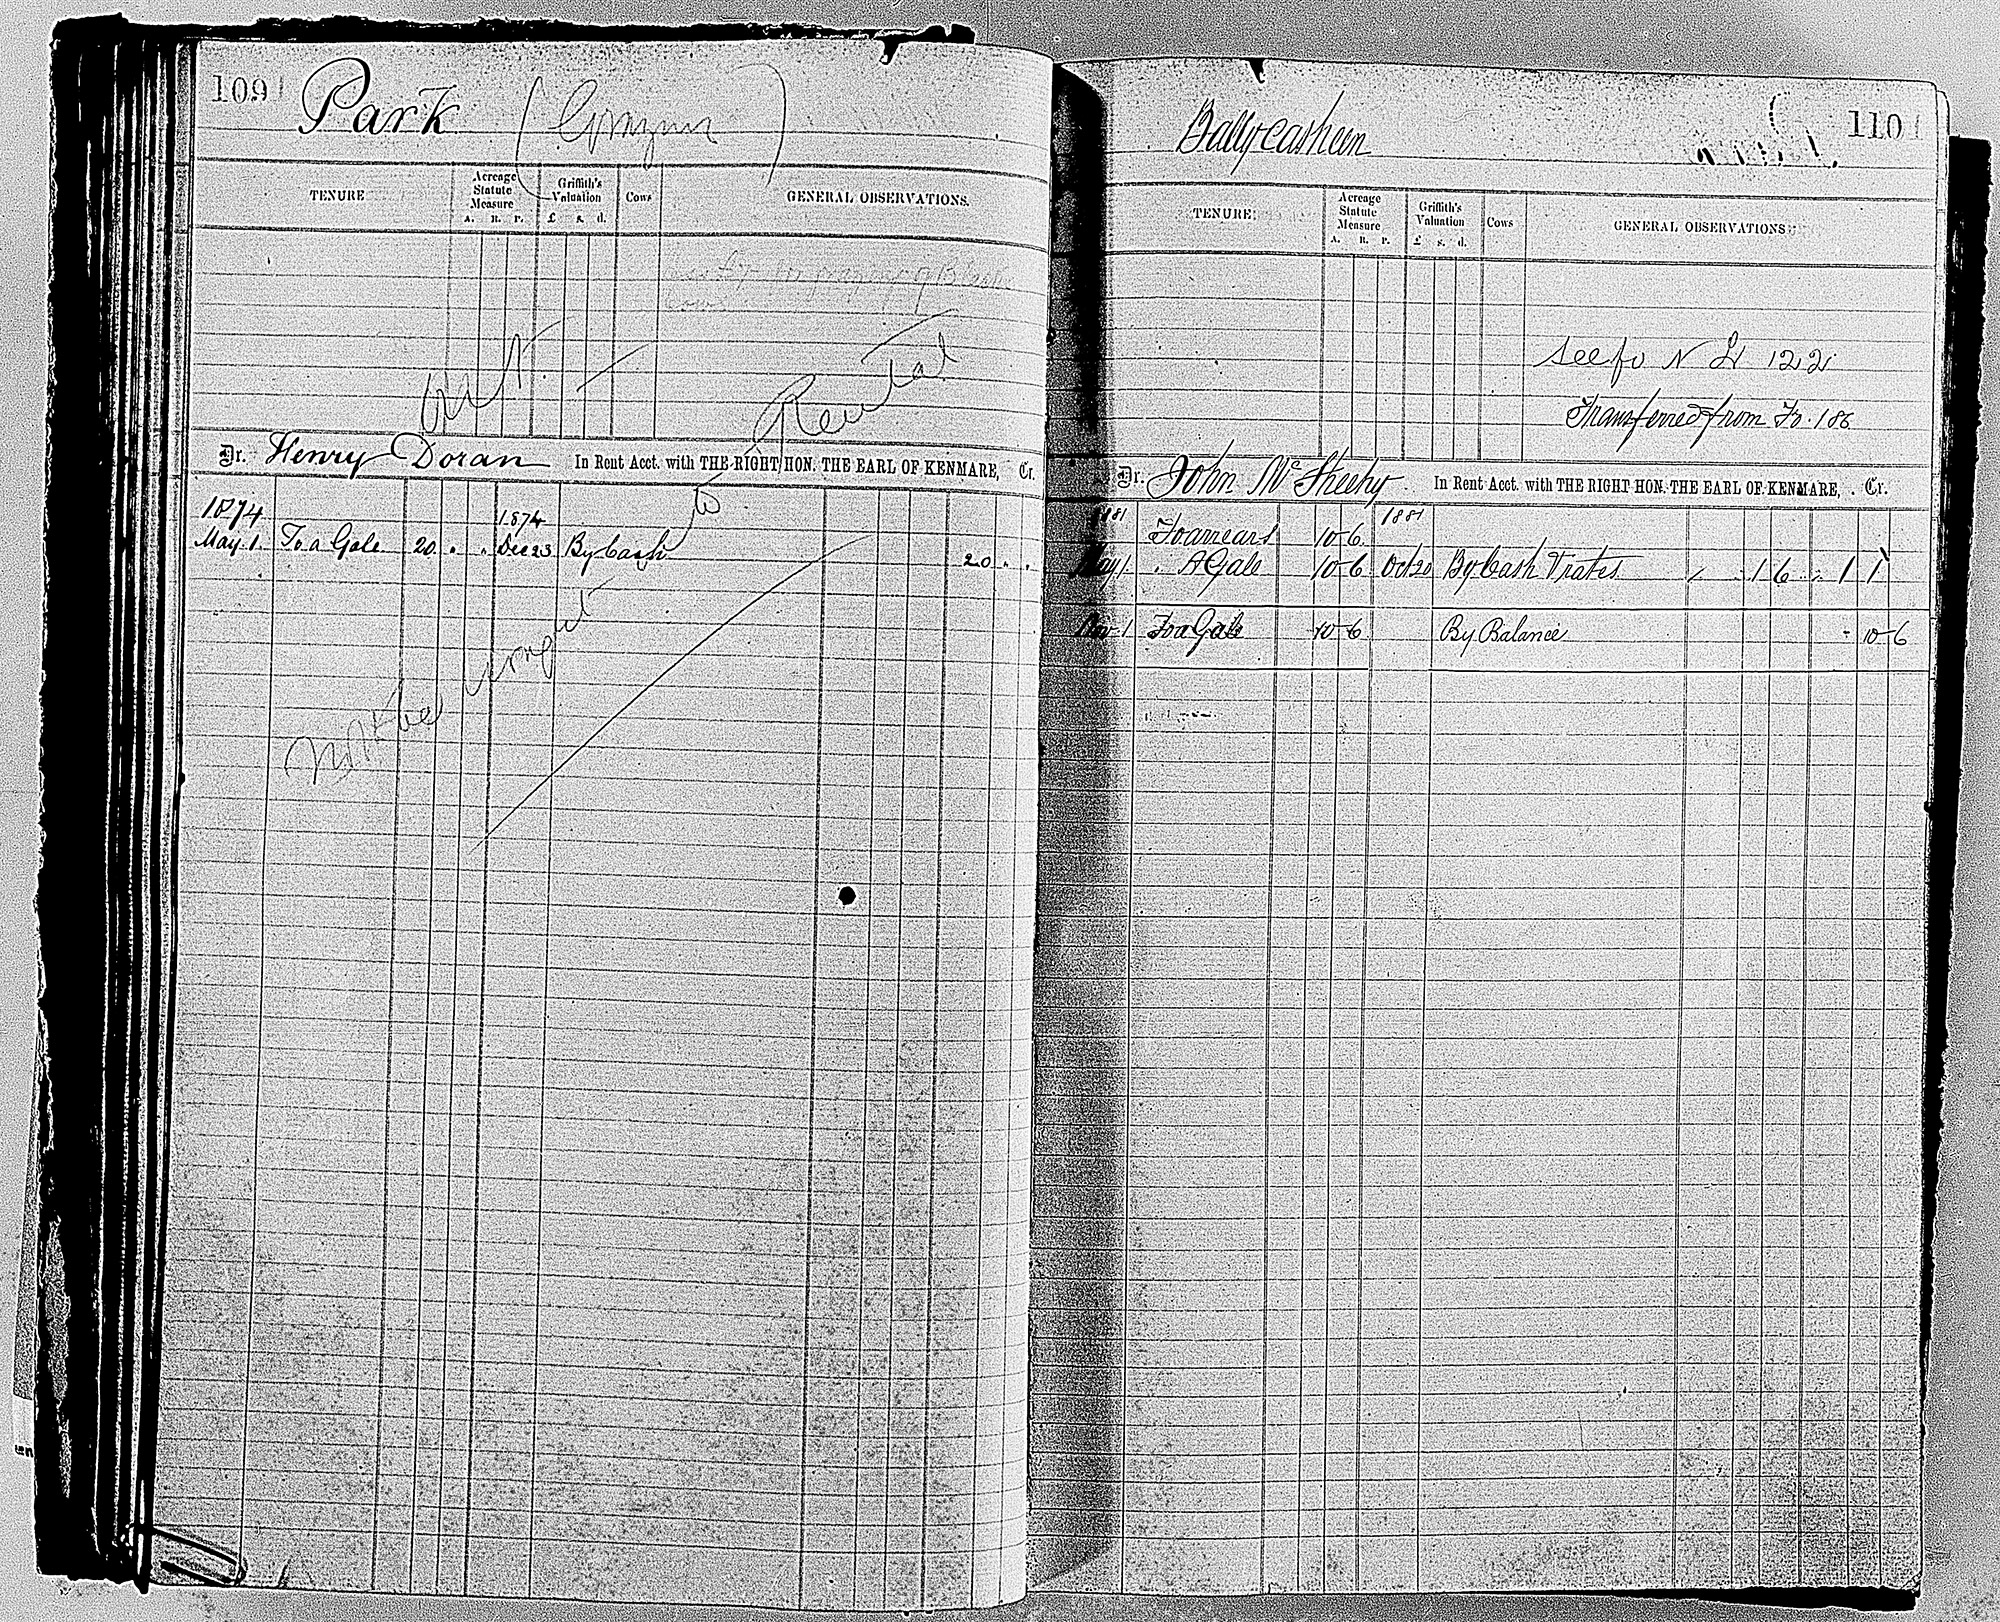 109
Park
TENURE
Acreage Statute Measure
A. R. P.
Griffith's Valuation
£ s. d.
Cows
GENERAL OBSERVATIONS.
for grazing of
cows
Rental
to
Dr. Henry Doran In Rent Acct. with THE RIGHT HON. THE EARL OF KENMARE, Cr.
1874 1874
May 1. To a Gale 20 . . Dec 23 By Cash 20 . .
110
Ballycasheen
TENURE:
Acreage Statute Measure
A. R. P.
Griffith's Valuation
£ s. d.
Cows
GENERAL OBSERVATIONS
See fo N L 122
Transferred from Fo. 186
Dr. John McSheehy. In Rent Acct. with THE RIGHT HON. THE EARL OF KENMARE, . Cr.
1881 1881
To arrears 10 6
May 1 " A Gale 10 6 Oct 20 By Cash & rates 1 6 1 1
Nov 1 To a Gale 10 6 By Balance - 10 6